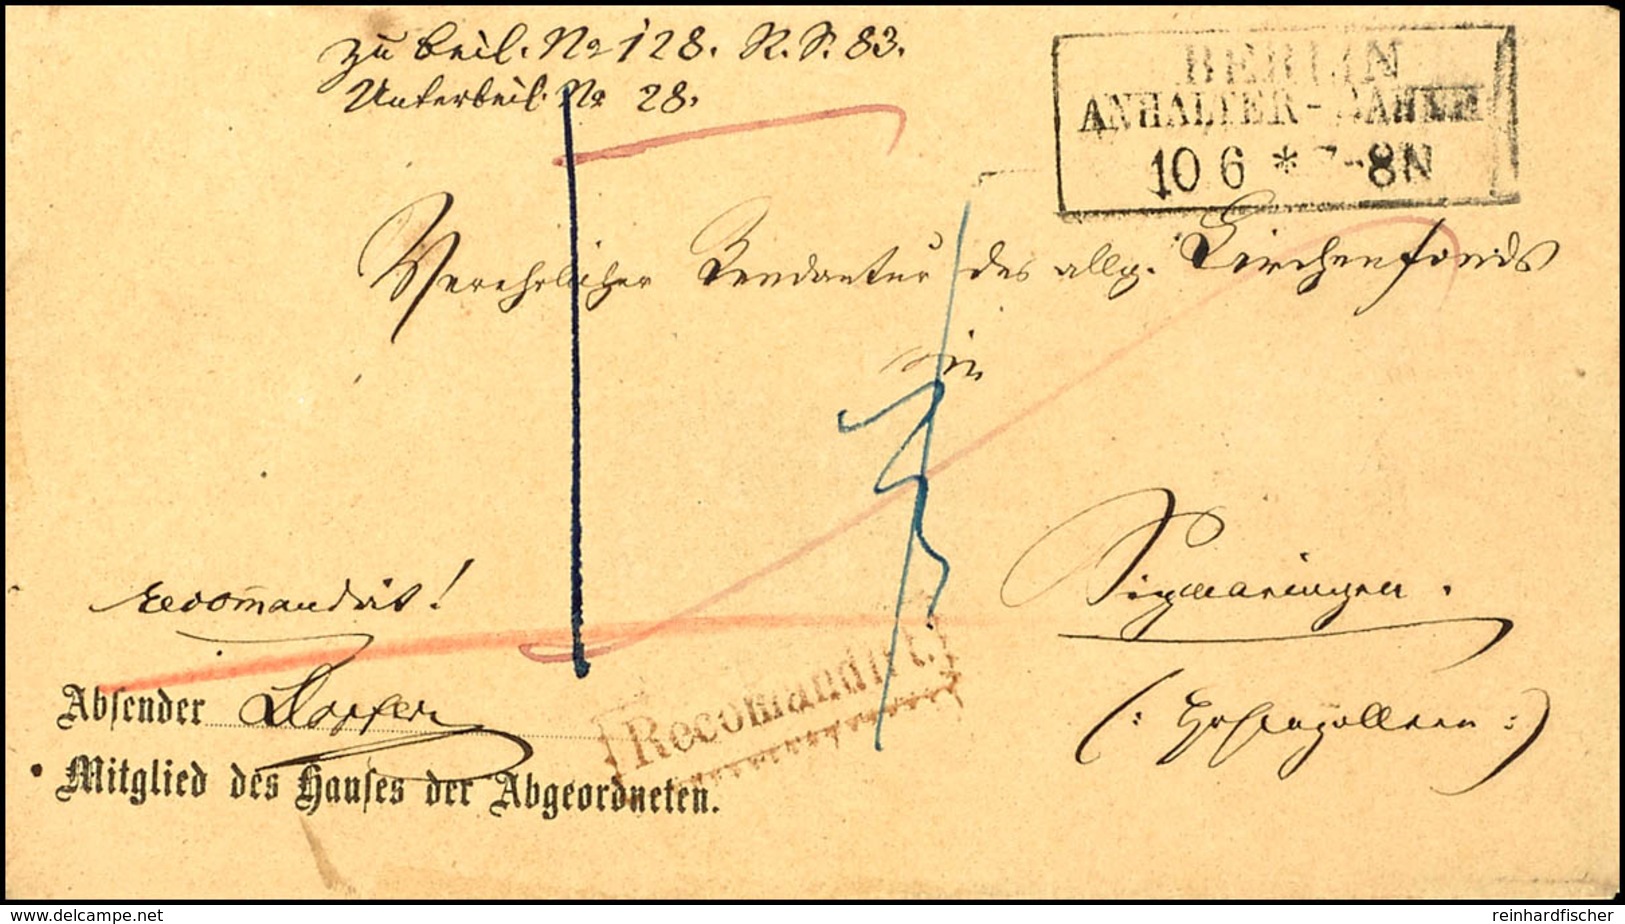 zu Beil. No 128. R. P. 83.
Unterbeil. No 28.
BERLIN
ANHALTER-BAHNH
10 6 * 7-8N
Verehrlicher Rendantur des allg. Kirchenfonds
in
Sigmaringen.
(: Hohenzollern :)
recom̅andirt!
Recomandirt.
Absender
Mitglied des Hauses der Abgeordneten.
reinhardfischer